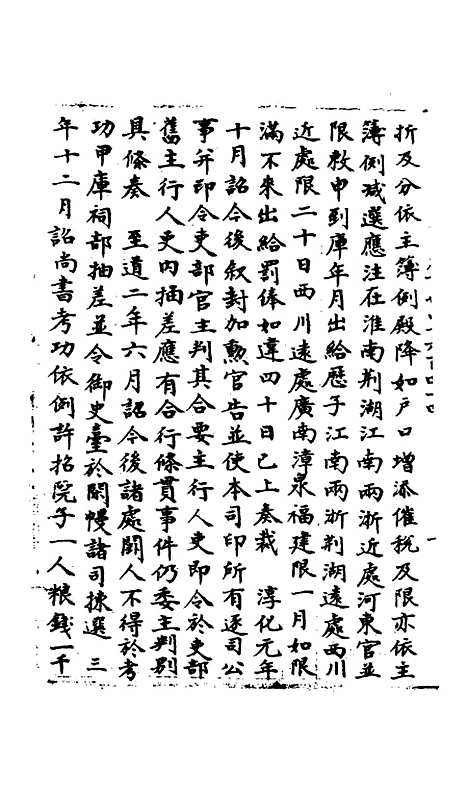 折及分依主簿例殿降如戶口增添催税及限亦依主
簿例减選應注在淮南荆湖江南兩浙近處河東官並
限敕申到庫年月出給歷子江南兩浙荆湖遠處西川
近處限二十日西川遠處廣南漳泉福建限一月如限
滿不來出給罰俸如違四十日已上奏裁　淳化元年
十月詔今後叙封加勲官告並使本司印所有逐司公
事并印令吏部官主判其合要主行人吏即令於吏部
舊主行人吏内抽差應有合行條貫事件仍委主判别
具條奏　至道二年六月詔今後諸處闕人不得於考
功甲庫祠部抽差並令御史臺於閑慢諸司揀選　三
年十二月詔尚書考功依例許招院子一人粮錢一千